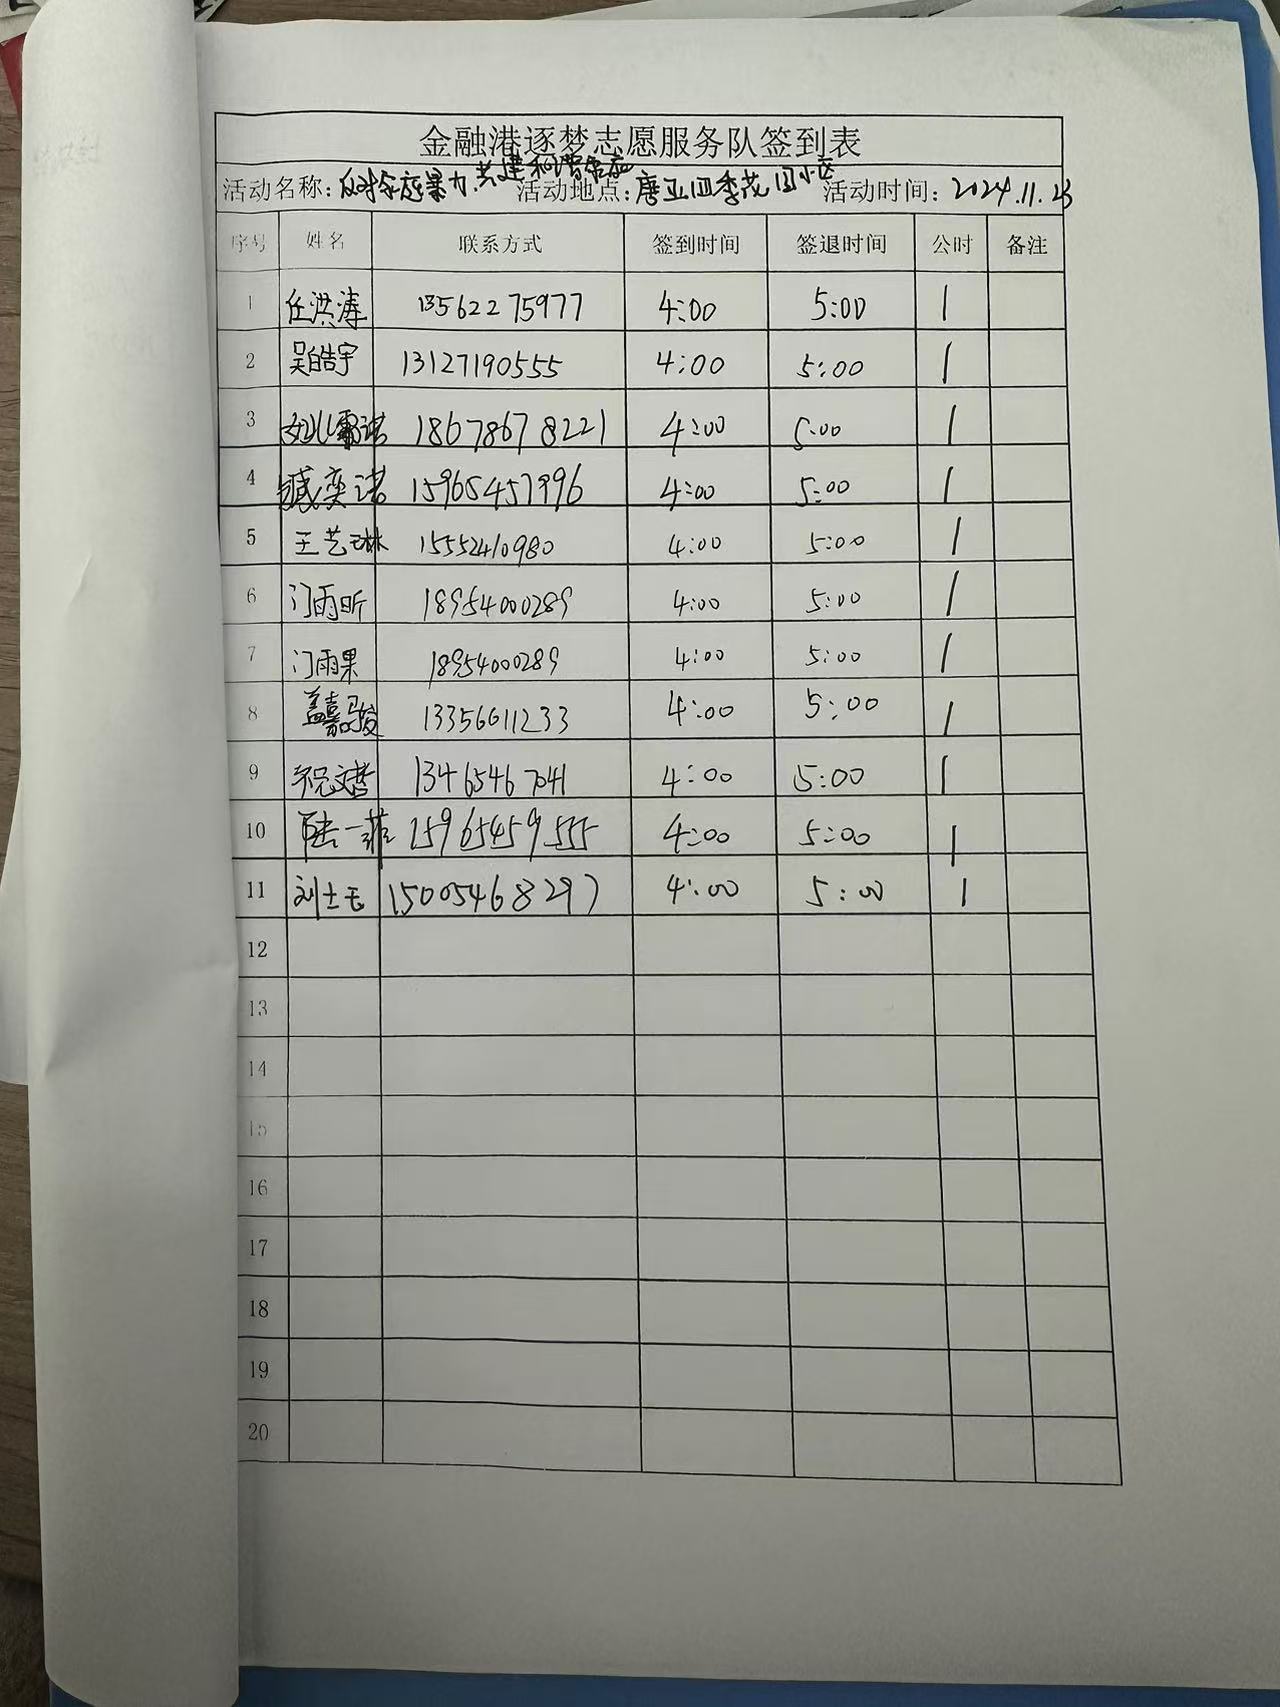 金融港逐梦志愿服务队签到表
活动名称: 反对家庭暴力 共建和谐家庭 活动地点: 唐亚四季花园小区 活动时间: 2024.11.23
序号 姓名 联系方式 签到时间 签退时间 公时 备注
1 任洪涛 13562275977 4:00 5:00 1
2 吴皓宇 13127190555 4:00 5:00 1
3 18678678221 4:00 5:00 1
4 臧奕诺 15965457996 4:00 5:00 1
5 王艺琳 15552410980 4:00 5:00 1
6 门雨昕 18954000289 4:00 5:00 1
7 门雨果 18954000289 4:00 5:00 1
8 盖嘉骏 13356611233 4:00 5:00 1
9 祝文哲 13465467041 4:00 5:00 1
10 陆一菲 15965459555 4:00 5:00 1
11 15005468297 4:00 5:00 1
12
13
14
15
16
17
18
19
20